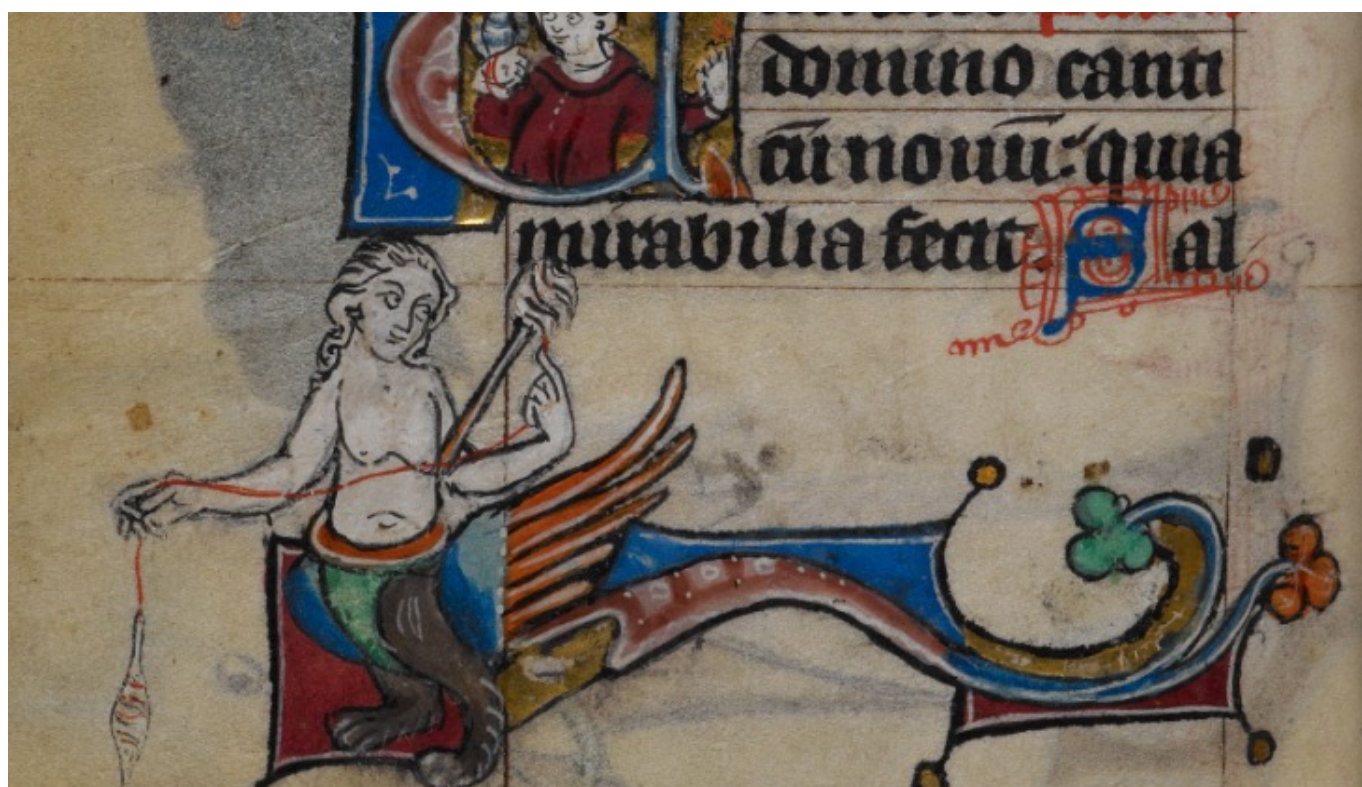 domino canti
cū nouū: quia
mirabilia fecit. Sal